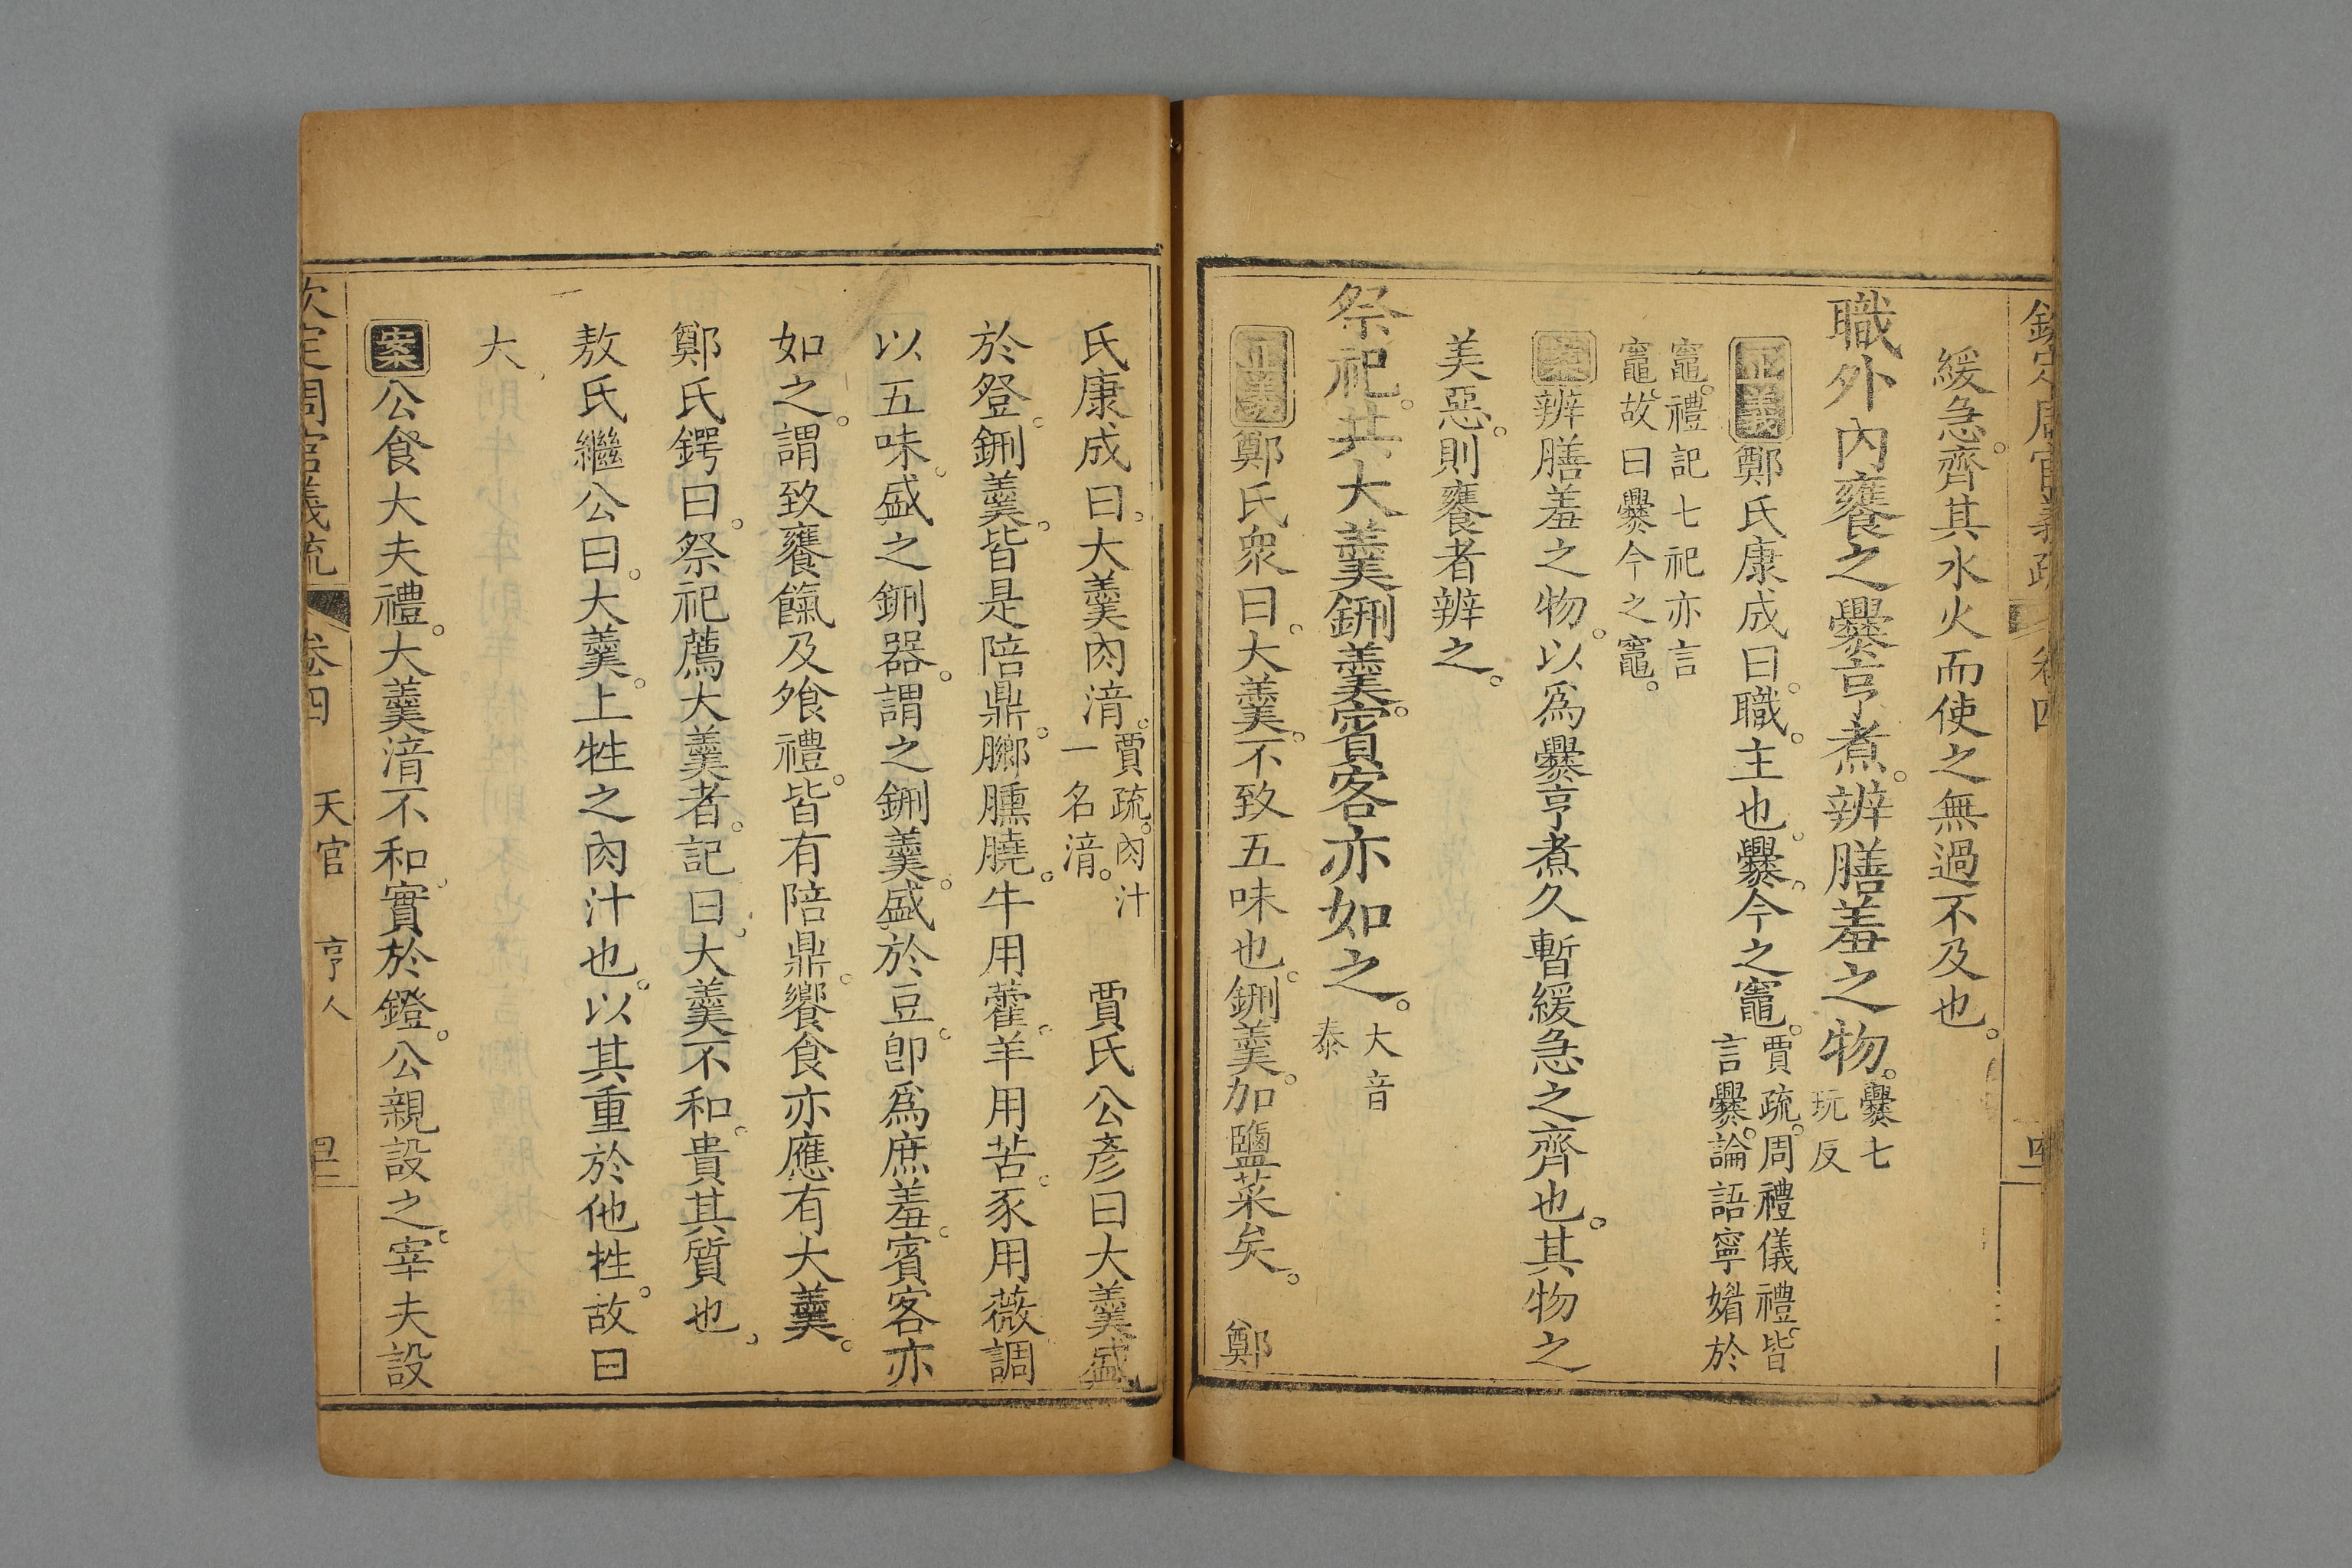 欽定周官義疏 卷四
緩急。齊其水火而使之無過不及也。
職外內饔之爨亨煮。辨膳羞之物。爨七
玩反
正義鄭氏康成曰。職。主也。爨。今之竈。賈疏。周禮儀禮。皆
言爨。論語寧媚於
竈。禮記七祀亦言
竈。故曰爨今之竈。
案辨膳羞之物。以爲爨亨煮久暫緩急之齊也。其物之
美惡。則饔者辨之。
祭祀。共大羹鉶羹。賓客亦如之。大音
泰
正義鄭氏衆曰。大羹。不致五味也。鉶羹。加鹽菜矣。 鄭
氏康成曰。大羹肉湇。賈疏。肉汁
一名湇。 賈氏公彥曰大羹盛
於登。鉶羹。皆是陪鼎。膷臐膮。牛用藿。羊用苦。豕用薇調
以五味。盛之鉶器。謂之鉶羹。盛於豆。卽爲庶羞。賓客亦
如之。謂致饔餼及飧禮。皆有陪鼎。饗食亦應有大羹。
鄭氏鍔曰。祭祀薦大羹者。記曰。大羹不和。貴其質也。
敖氏繼公曰。大羹。上牲之肉汁也。以其重於他牲。故曰
大、
案公食大夫禮。大羹湇不和。實於鐙。公親設之。宰夫設
欽定周官義疏 卷四 天官 亨人